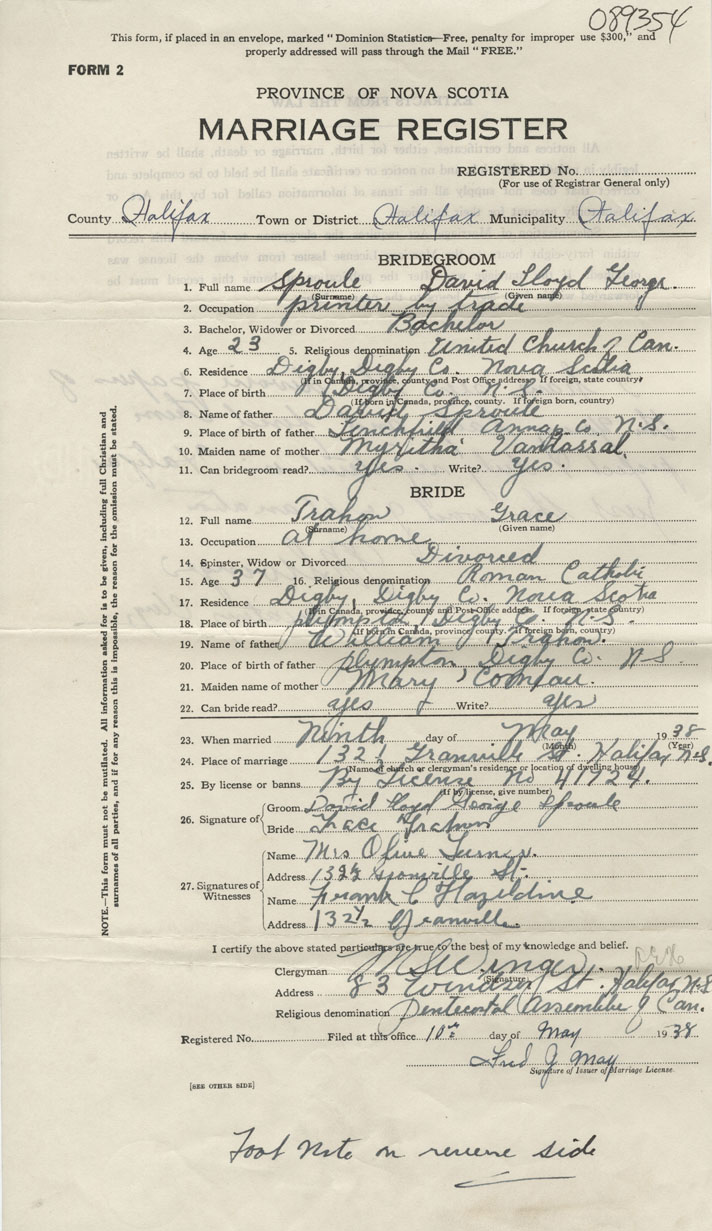 089354
This form, if placed in an envelope, marked "Dominion Statistics—Free, penalty for improper use $300," and
properly addressed will pass through the Mail "FREE."
FORM 2
PROVINCE OF NOVA SCOTIA
MARRIAGE REGISTER
REGISTERED No.
(For use of Registrar General only)
County Halifax Town or District Halifax Municipality Halifax
BRIDEGROOM
1. Full name Sproule David Lloyd George
(Surname) (Given name)
2. Occupation printer by trade
3. Bachelor, Widower or Divorced Bachelor
4. Age 23 5. Religious denomination United Church of Can.
6. Residence Digby Digby Co. Nova Scotia
(If in Canada, province, county and Post Office address. If foreign, state country)
7. Place of birth Digby Co. N.S.
(If born in Canada, province, county. If foreign born, country)
8. Name of father David Sproule
9. Place of birth of father Linchfield Annap Co. N.S.
10. Maiden name of mother Myrtha VanTassal
11. Can bridegroom read? yes. Write? yes.
BRIDE
12. Full name Trahon Grace
(Surname) (Given name)
13. Occupation at home
14. Spinster, Widow or Divorced Divorced
15. Age 37 16. Religious denomination Roman Catholic
17. Residence Digby, Digby Co. Nova Scotia
(If in Canada, province, county and Post Office address. If foreign, state country)
18. Place of birth plympton, Digby Co. N.S.
(If born in Canada, province, county. If foreign born, country)
19. Name of father William Trahon.
20. Place of birth of father plympton Digby Co. N.S.
21. Maiden name of mother Mary Comeau.
22. Can bride read? yes Write? yes
23. When married Ninth day of May 1938
(Month) (Year)
24. Place of marriage 132½ Granville St. Halifax N.S.
(Name of church or clergyman's residence or location of dwelling house)
25. By license or banns By License No 41724.
(If by license, give number)
26. Signature of Groom David Lloyd George Sproule
Bride Grace Trahon
27. Signatures of Witnesses
Name Mrs Olive Turner.
Address 132½ Granville St.
Name Frank C Hazeldine
Address 132½ Granville.
I certify the above stated particulars are true to the best of my knowledge and belief.
Clergyman Winger.
(Signature)
Address 83 Windsor St. Halifax, N.S
Religious denomination Pentecostal Assemblie of Can.
Registered No. Filed at this office 10th day of May 1938
Fred J May
Signature of Issuer of Marriage License.
[SEE OTHER SIDE]
Foot Note on reverse side
NOTE.—This form must not be mutilated. All information asked for is to be given, including full Christian and
surnames of all parties, and if for any reason this is impossible, the reason for the omission must be stated.